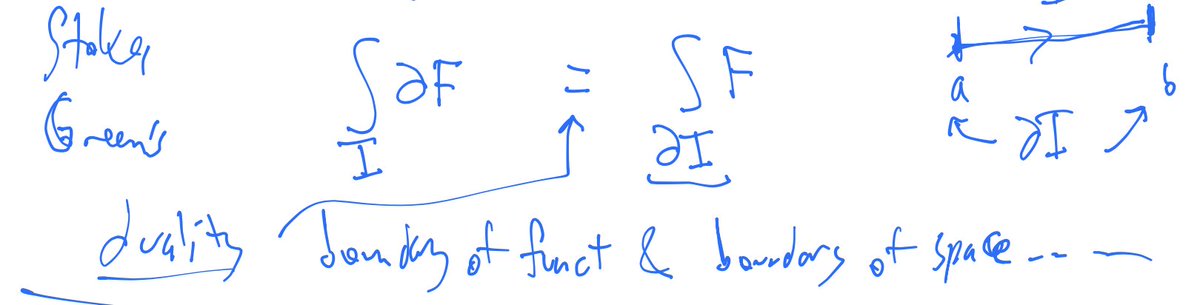 Stokes
Green's
∫_I ∂F = ∫_∂I F
a b
∂I
duality boundary of funct & boundary of space...